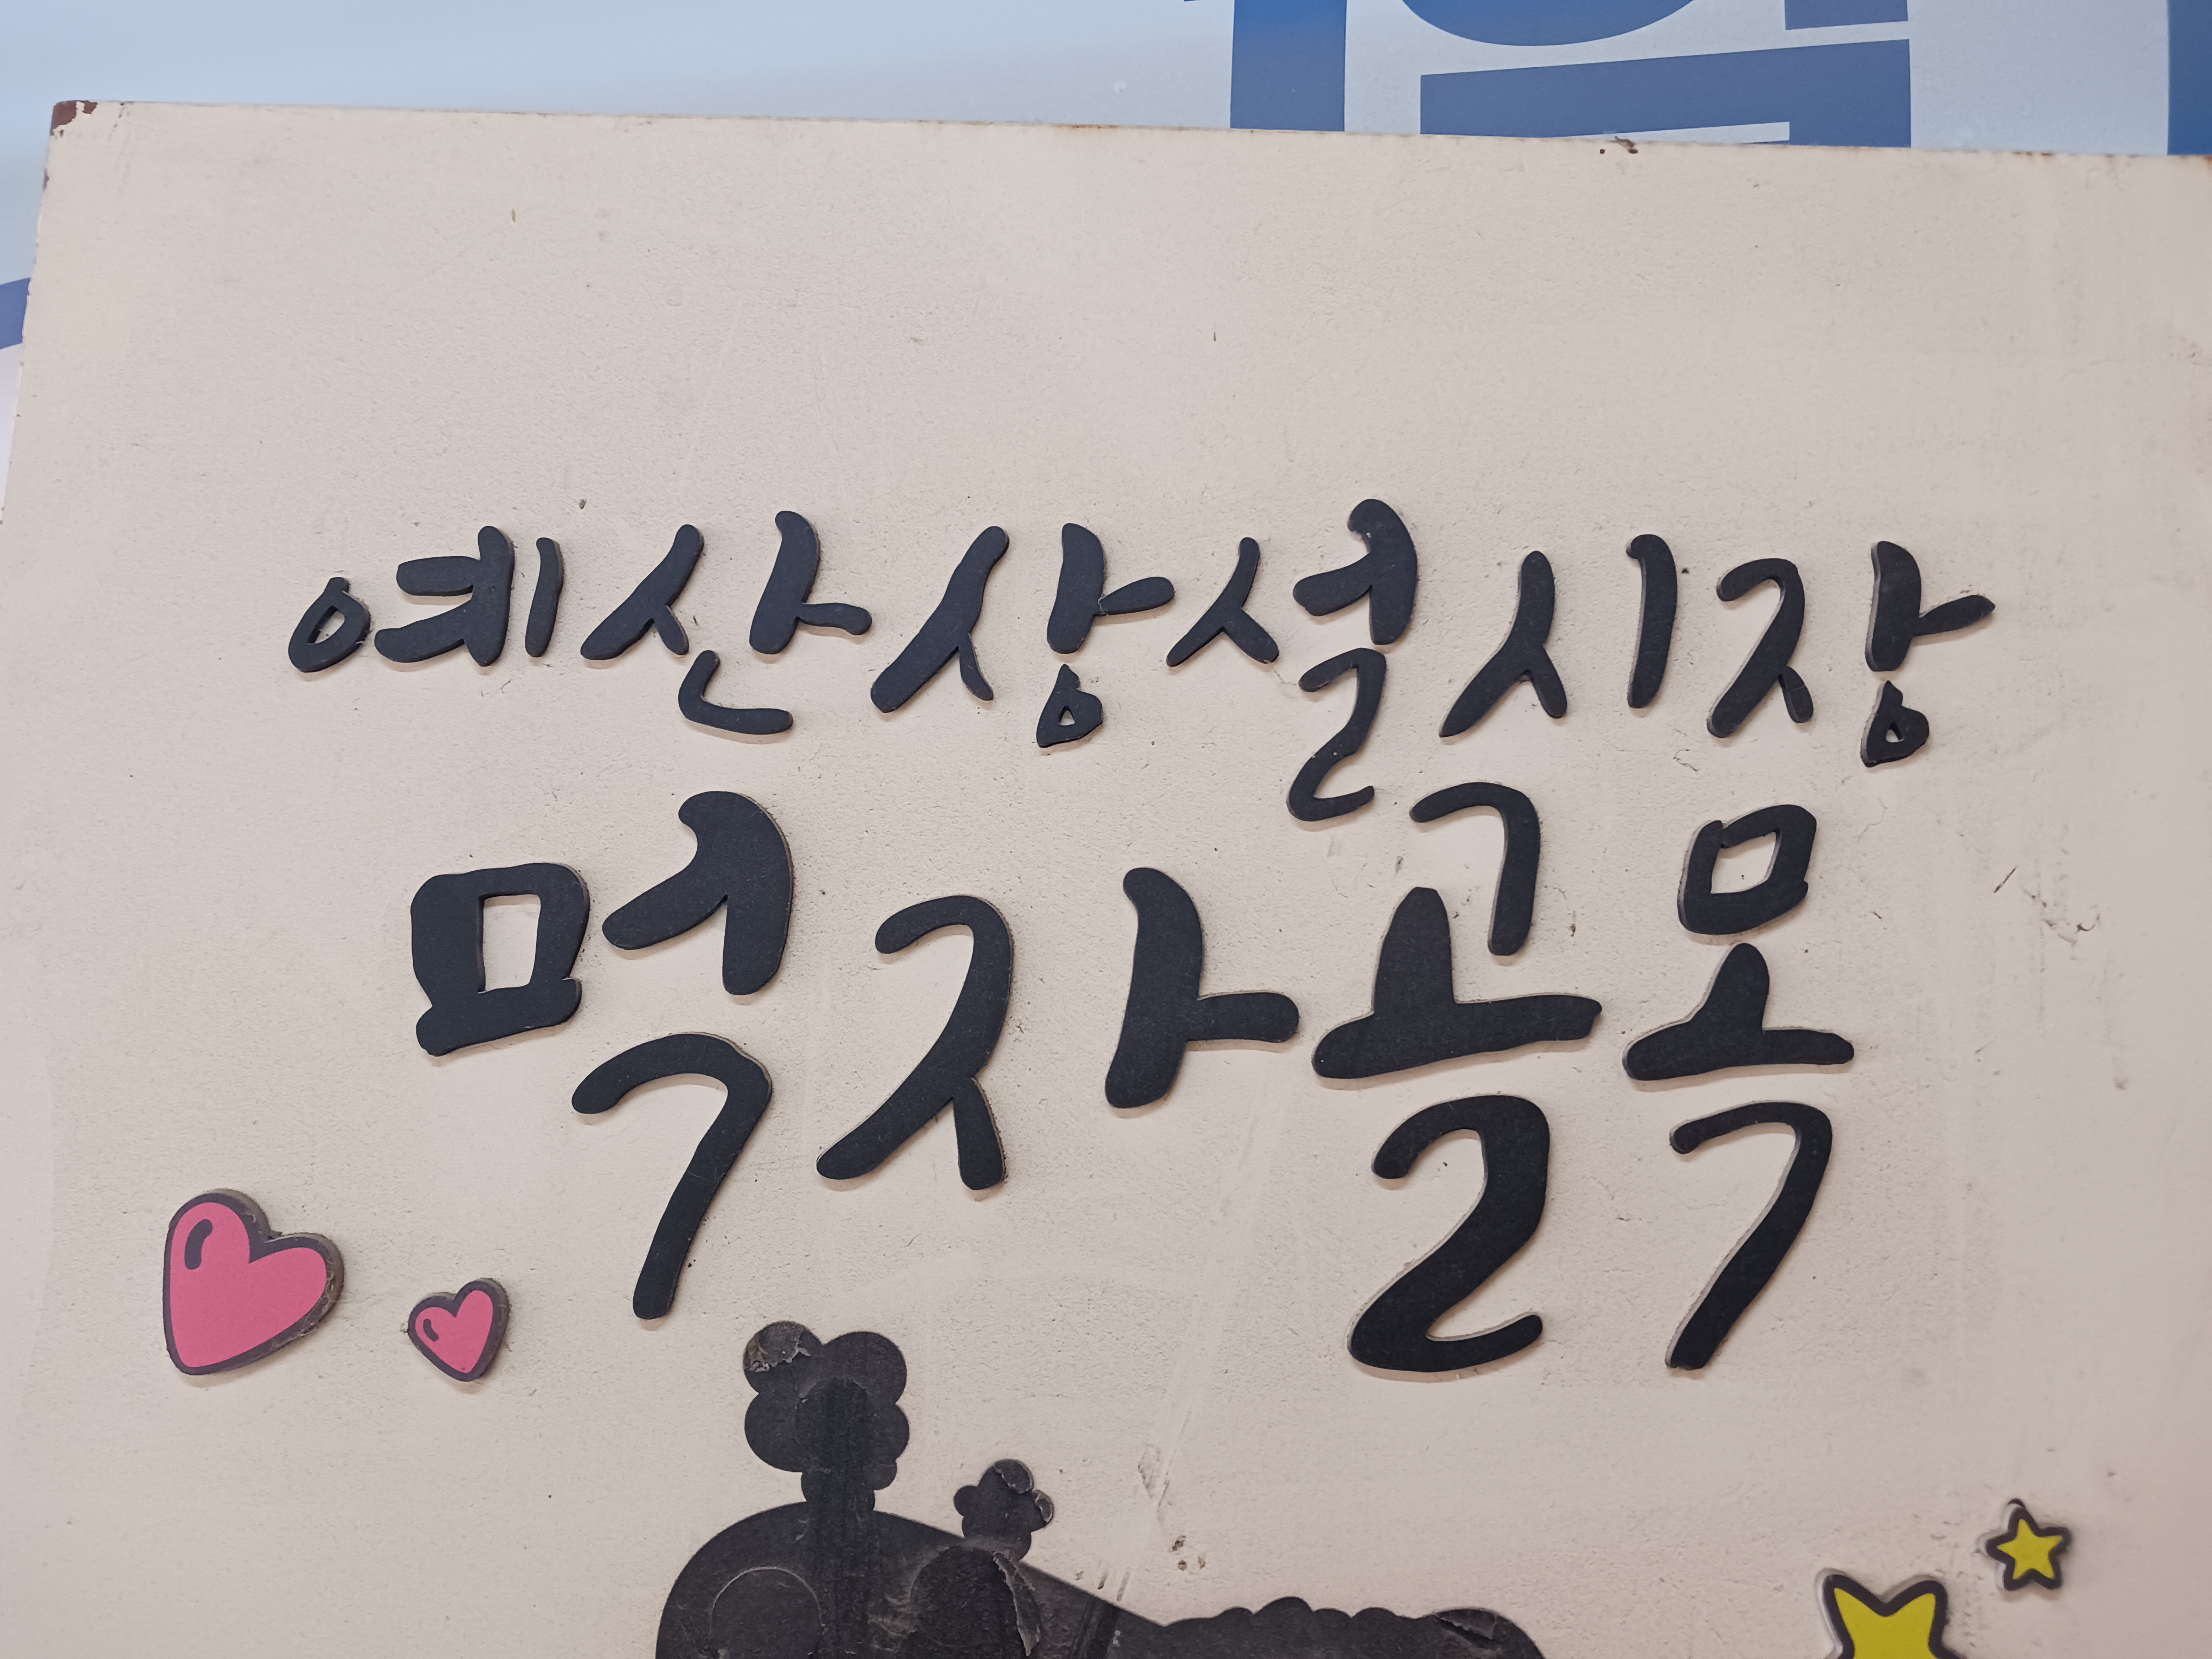 예산상설시장
먹자골목